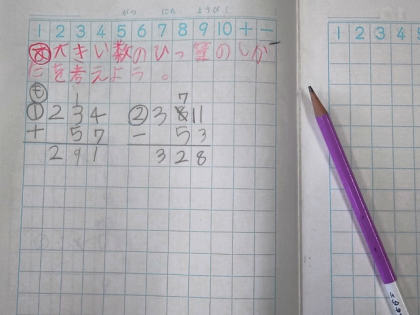 がつ にち ようび
1 2 3 4 5 6 7 8 9 10 + −
め 大きい数のひっ算のしか
たを考えよう。
も 1 7
① 2 3 4 ② 3 8 11
+ 5 7 − 5 3
2 9 1 3 2 8
1 2 3 4